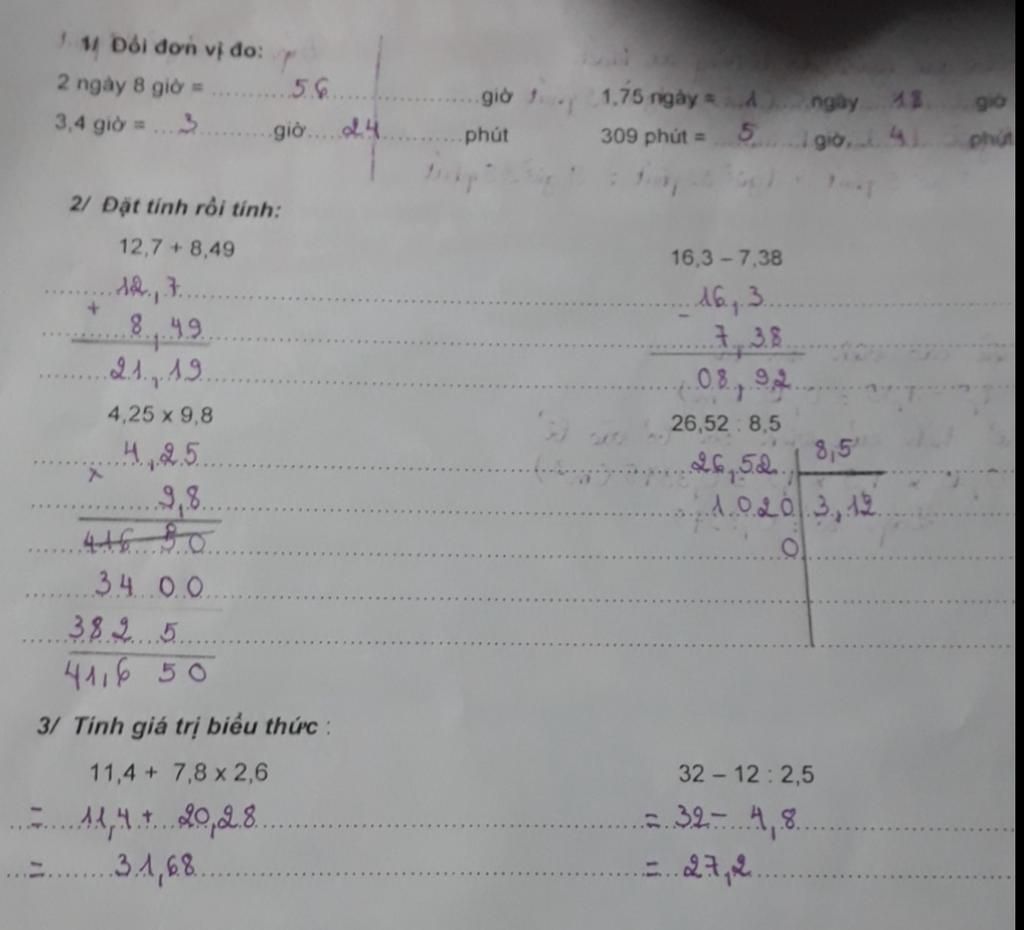 1/ Đổi đơn vị đo:
2 ngày 8 giờ = ...... 56 ...... giờ 1,75 ngày = ... 1 ... ngày ... 18 ... giờ
3,4 giờ = ... 3 ... giờ ... 24 ... phút 309 phút = ... 5 ... giờ ... 4 ... phút
2/ Đặt tính rồi tính:
12,7 + 8,49 16,3 – 7,38
12,7 16,3
+ -
8,49 7,38
21,19 08,92
4,25 x 9,8 26,52 : 8,5
4,25 26,52 8,5
x
9,8 1020 3,12
416 50 0
34 00
382 5
41,6 50
3/ Tính giá trị biểu thức :
11,4 + 7,8 x 2,6 32 – 12 : 2,5
= 11,4 + 20,28 = 32 - 4,8
= 31,68 = 27,2